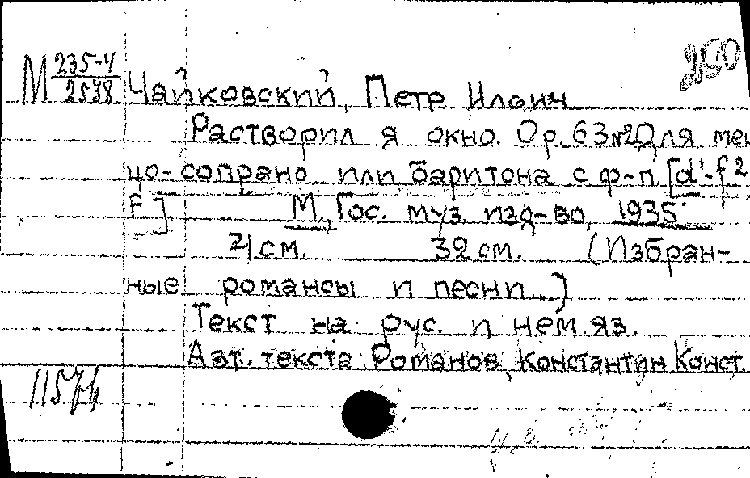 250
М 235-4/2538 Чайковский, Петр Ильич
Растворил я окно. Ор. 63 №2 Для мец
цо-сопрано или баритона с ф-п. [d¹-f²
F] М., Гос. муз. изд-во, 1935
4 с. 32 см. (Избран-
ные романсы и песни.)
Текст на рус. и нем. яз.
Авт. текста Романов, Константин Конст.